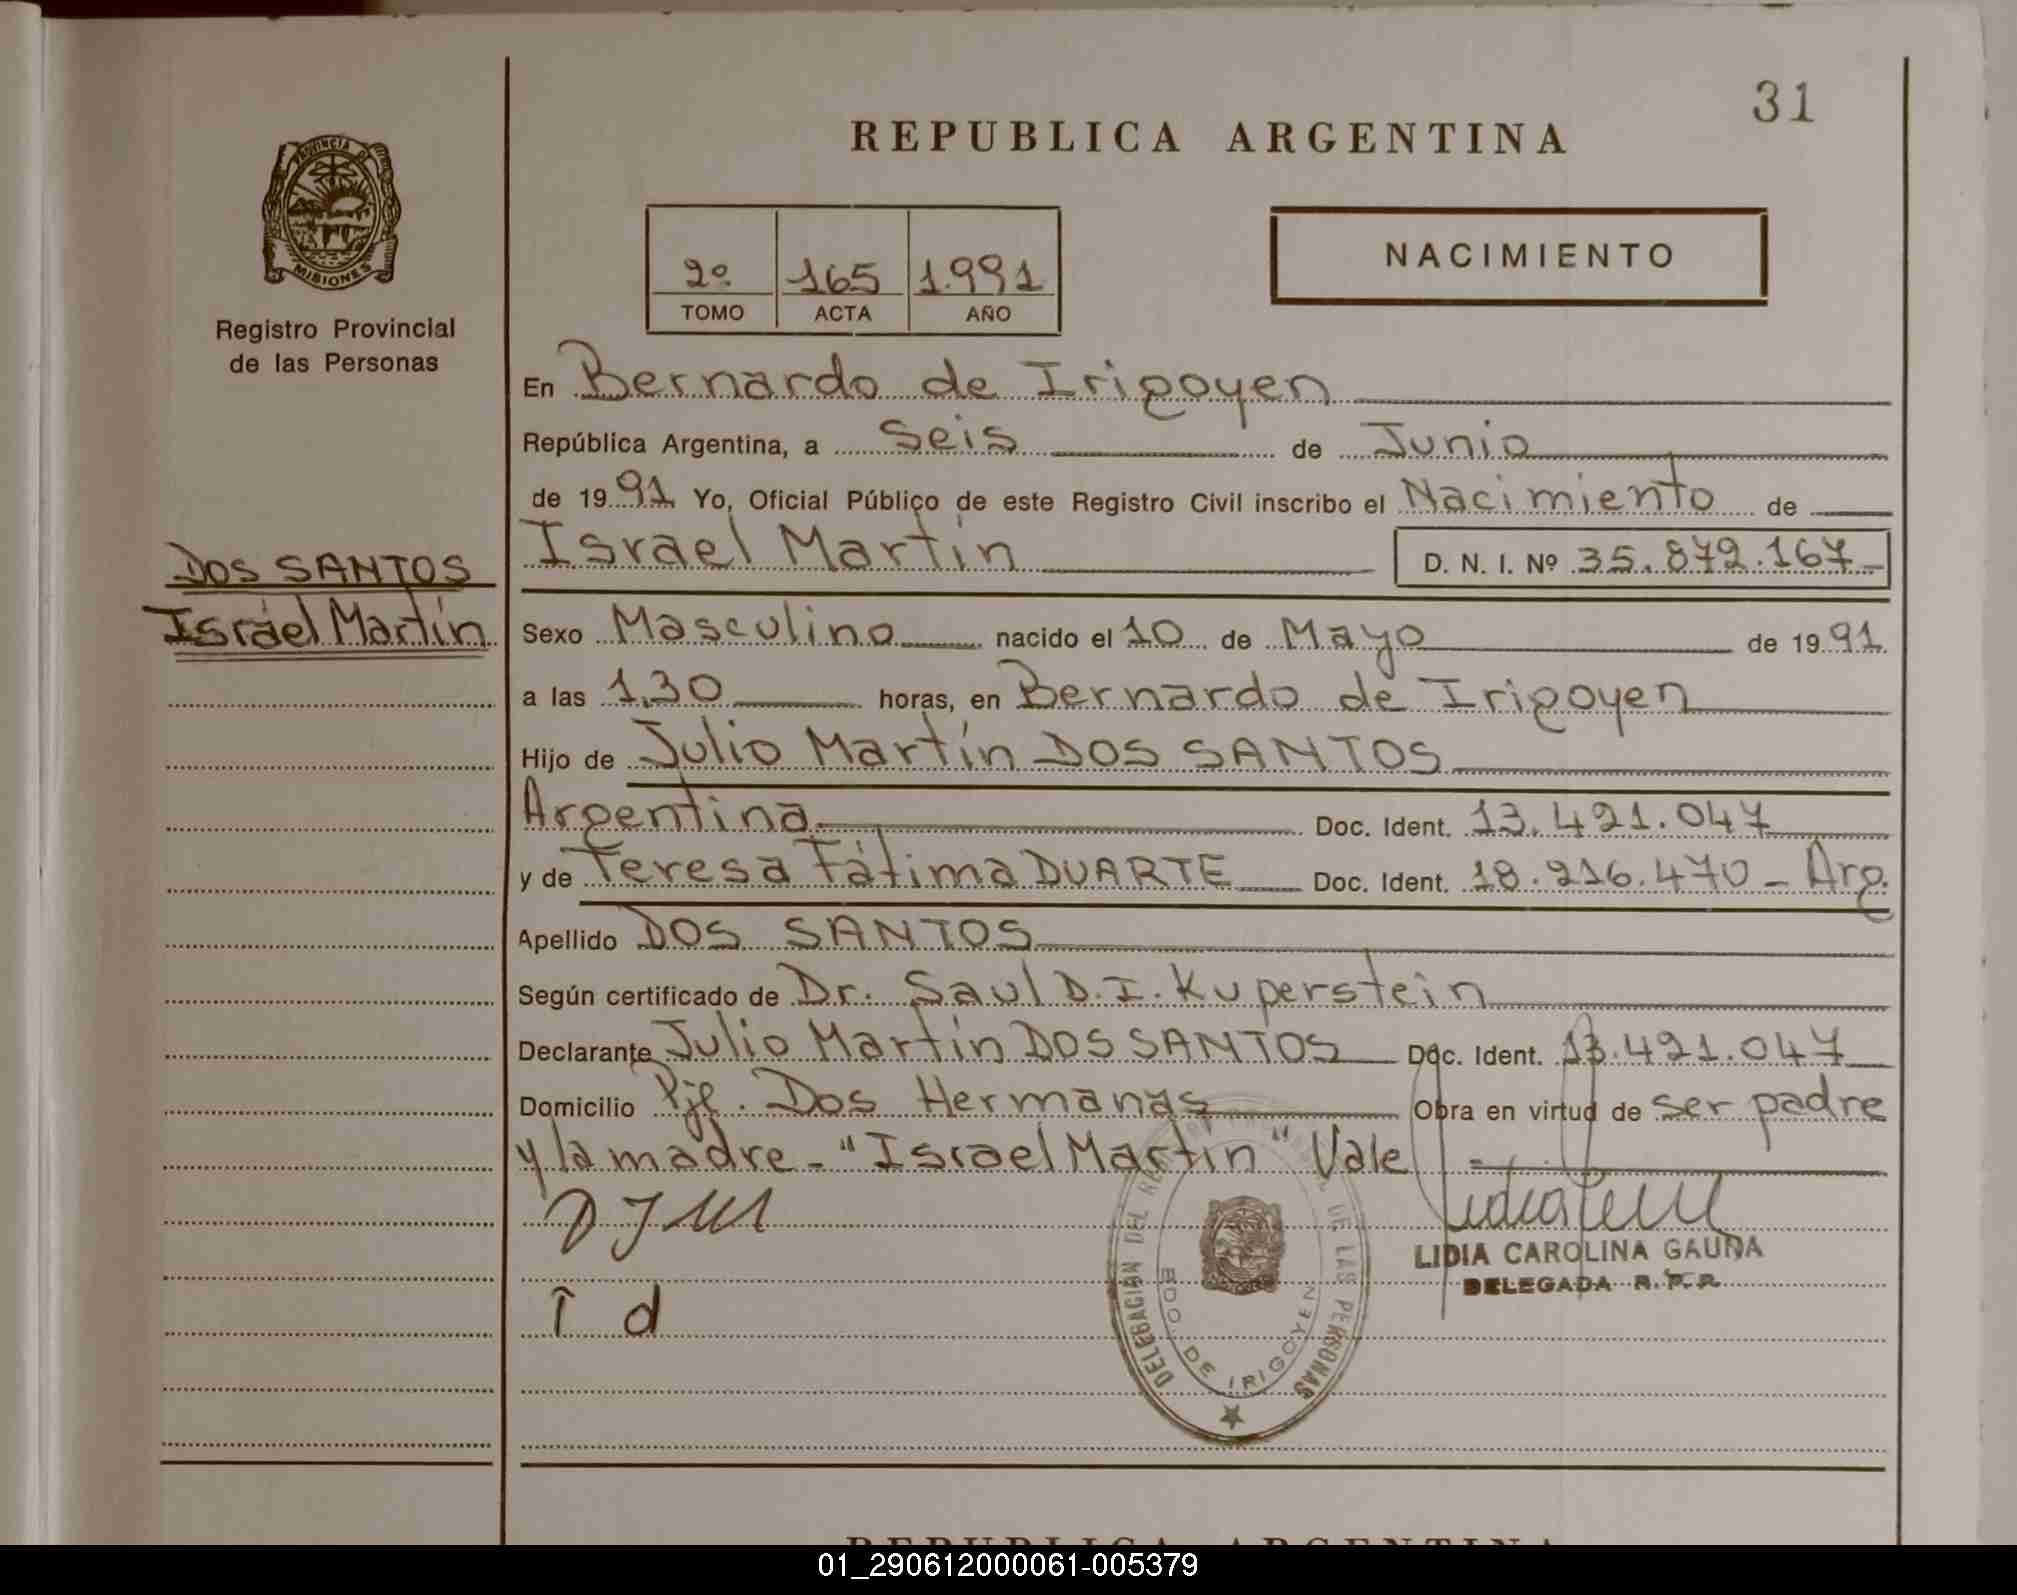 31
REPUBLICA ARGENTINA
PROVINCIA D
MISIONES
Registro Provincial
de las Personas
NACIMIENTO
2º 165 1.991
TOMO ACTA AÑO
En Bernardo de Irigoyen
República Argentina, a Seis de Junio
de 1991 Yo, Oficial Público de este Registro Civil inscribo el Nacimiento de
Israel Martín D. N. I. Nº 35.872.167
DOS SANTOS
Israel Martín
Sexo Masculino nacido el 10 de Mayo de 1991
a las 1,30 horas, en Bernardo de Irigoyen
Hijo de Julio Martín DOS SANTOS
Argentina Doc. Ident. 13.421.047
y de Teresa Fátima DUARTE Doc. Ident. 18.216.470 - Arg.
Apellido DOS SANTOS
Según certificado de Dr. Saul D. I. Kuperstein
Declarante Julio Martín DOS SANTOS Doc. Ident. 13.421.047
Domicilio Pje. Dos Hermanas Obra en virtud de ser padre
y la madre - "Israel Martín" Vale
DELEGACIÓN DEL REGISTRO PROVINCIAL DE LAS PERSONAS
BDO. DE IRIGOYEN
LIDIA CAROLINA GAUNA
DELEGADA R. P. P.
T d
REPUBLICA ARGENTINA
01_290612000061-005379